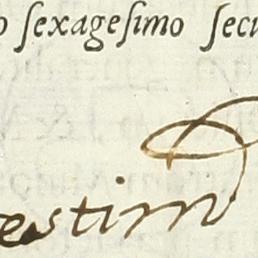 o ſexageſimo ſecu
æstim